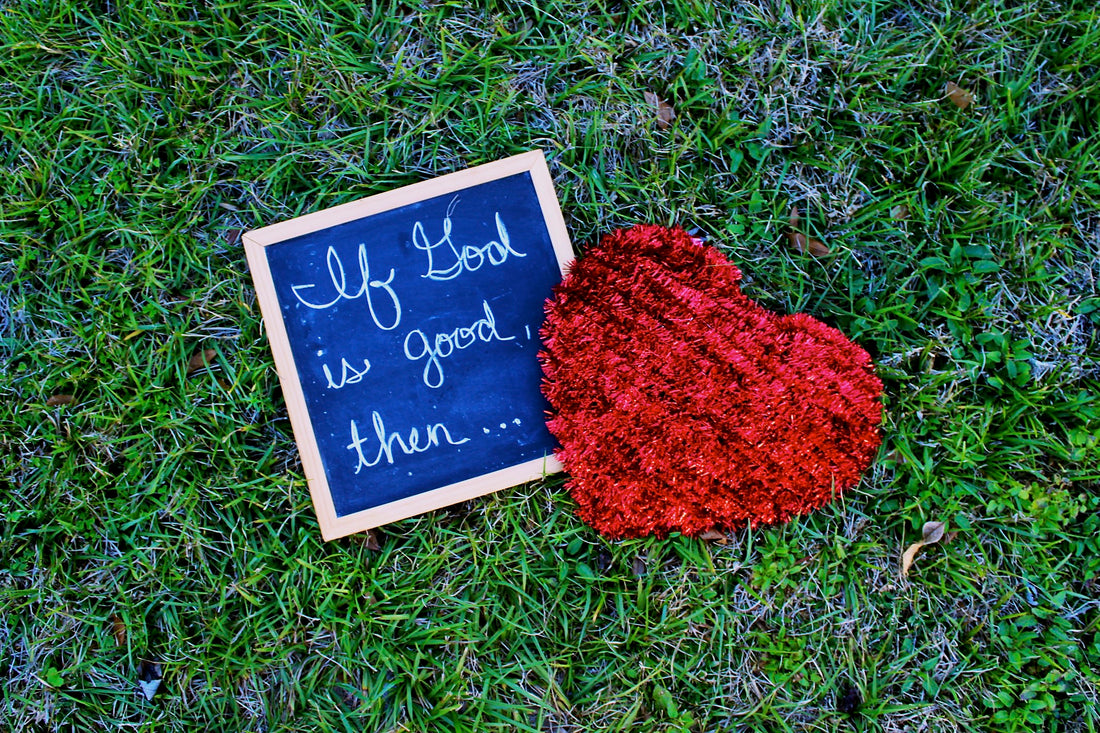 If God
is good,
then...